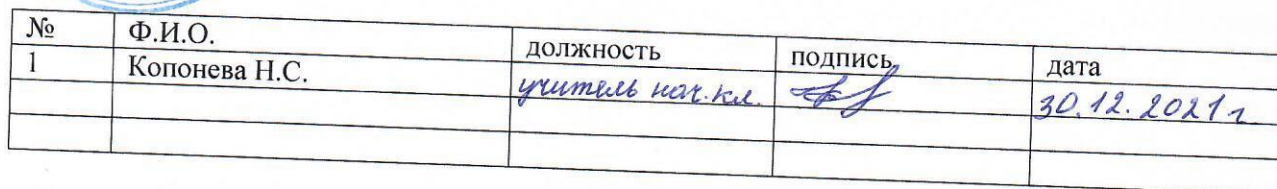 № Ф.И.О. должность подпись дата
1 Копонева Н.С. учитель нач.кл. 30.12.2021 г